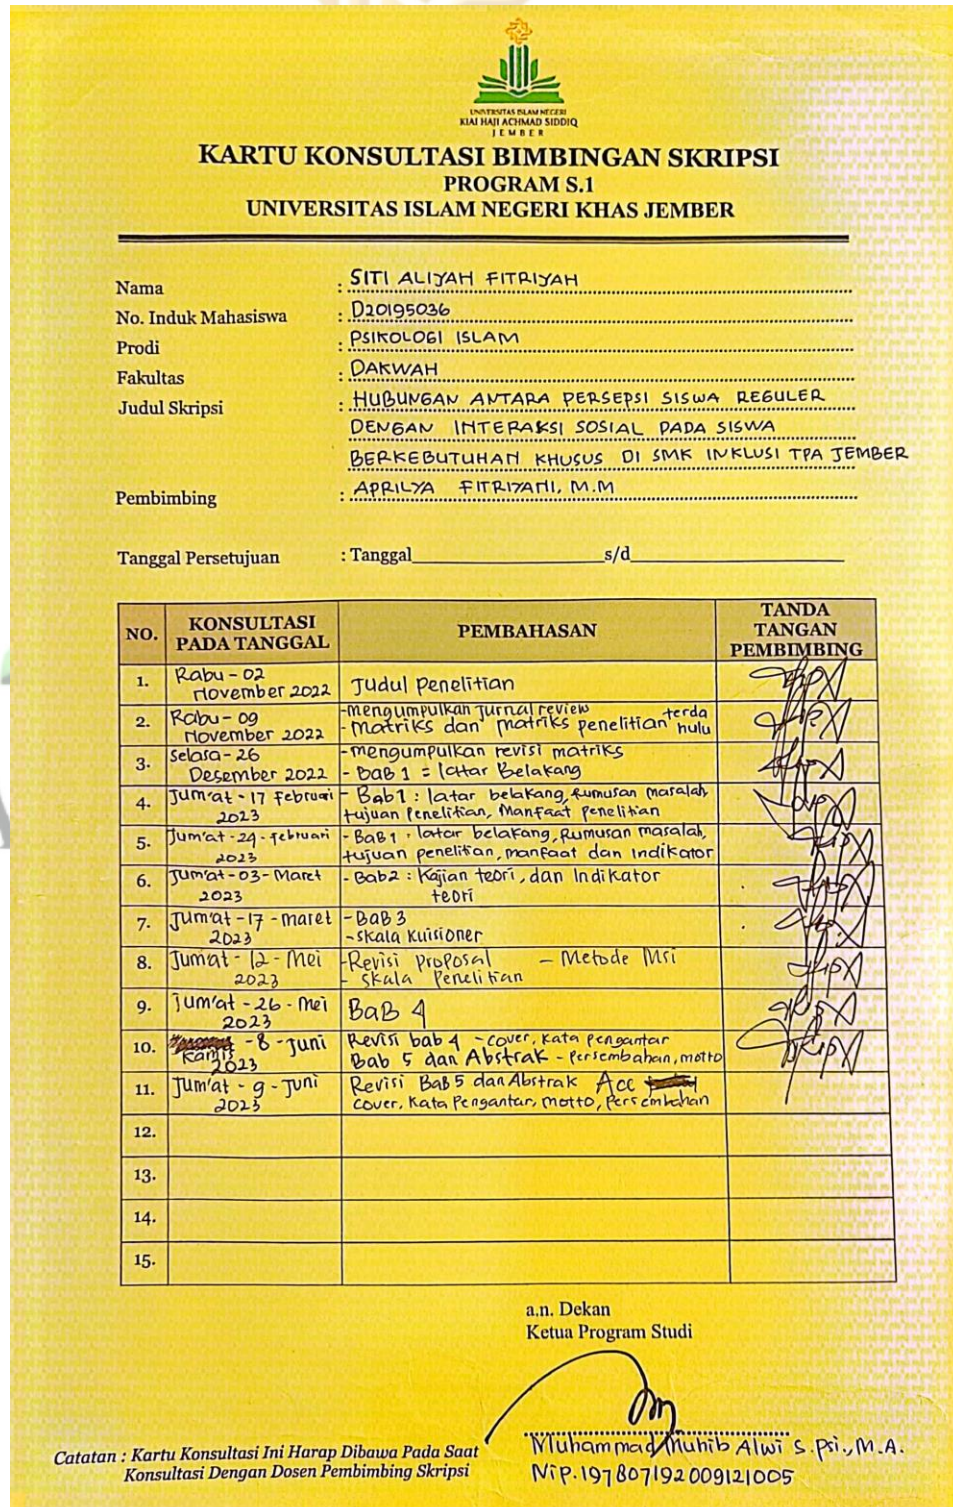 UNIVERSITAS ISLAM NEGERI
KIAI HAJI ACHMAD SIDDIQ
JEMBER
KARTU KONSULTASI BIMBINGAN SKRIPSI
PROGRAM S.1
UNIVERSITAS ISLAM NEGERI KHAS JEMBER
Nama : SITI ALIYAH FITRIYAH
No. Induk Mahasiswa : D20195036
Prodi : PSIKOLOGI ISLAM
Fakultas : DAKWAH
Judul Skripsi : HUBUNGAN ANTARA PERSEPSI SISWA REGULER
DENGAN INTERAKSI SOSIAL PADA SISWA
BERKEBUTUHAN KHUSUS DI SMK INKLUSI TPA JEMBER
Pembimbing : APRILYA FITRIYANI, M.M
Tanggal Persetujuan : Tanggal s/d
NO. KONSULTASI PADA TANGGAL PEMBAHASAN TANDA TANGAN PEMBIMBING
1. Rabu - 02 November 2022 Judul Penelitian
2. Rabu - 09 November 2022 -Mengumpulkan Jurnal review
- Matriks dan matriks penelitian terdahulu
3. Selasa - 26 Desember 2022 -mengumpulkan revisi matriks
- BaB 1 = latar Belakang
4. Jum'at - 17 februari 2023 - Bab1 : latar belakang, Rumusan masalah,
tujuan Penelitian, Manfaat Penelitian
5. Jum'at - 24 - februari 2023 - BaB 1 : latar belakang, Rumusan masalah,
tujuan penelitian, manfaat dan Indikator
6. Jum'at - 03 - Maret 2023 - Bab2 : Kajian teori, dan Indikator
teori
7. Jum'at - 17 - maret 2023 - BaB 3
- skala Kuisioner
8. Jumat - 12 - Mei 2023 -Revisi proposal - Metode
- Skala Penelitian
9. Jum'at - 26 - Mei 2023 BaB 4
10. Kamis - 8 - Juni 2023 Revisi bab 4 - cover, Kata pengantar
Bab 5 dan Abstrak - Persembahan, motto
11. Jum'at - 9 - Juni 2023 Revisi BaB 5 dan Abstrak Acc
cover, Kata Pengantar, motto, Persembahan
12.
13.
14.
15.
a.n. Dekan
Ketua Program Studi
Muhammad Muhib Alwi S.Psi., M.A.
Nip. 197807192009121005
Catatan : Kartu Konsultasi Ini Harap Dibawa Pada Saat
Konsultasi Dengan Dosen Pembimbing Skripsi